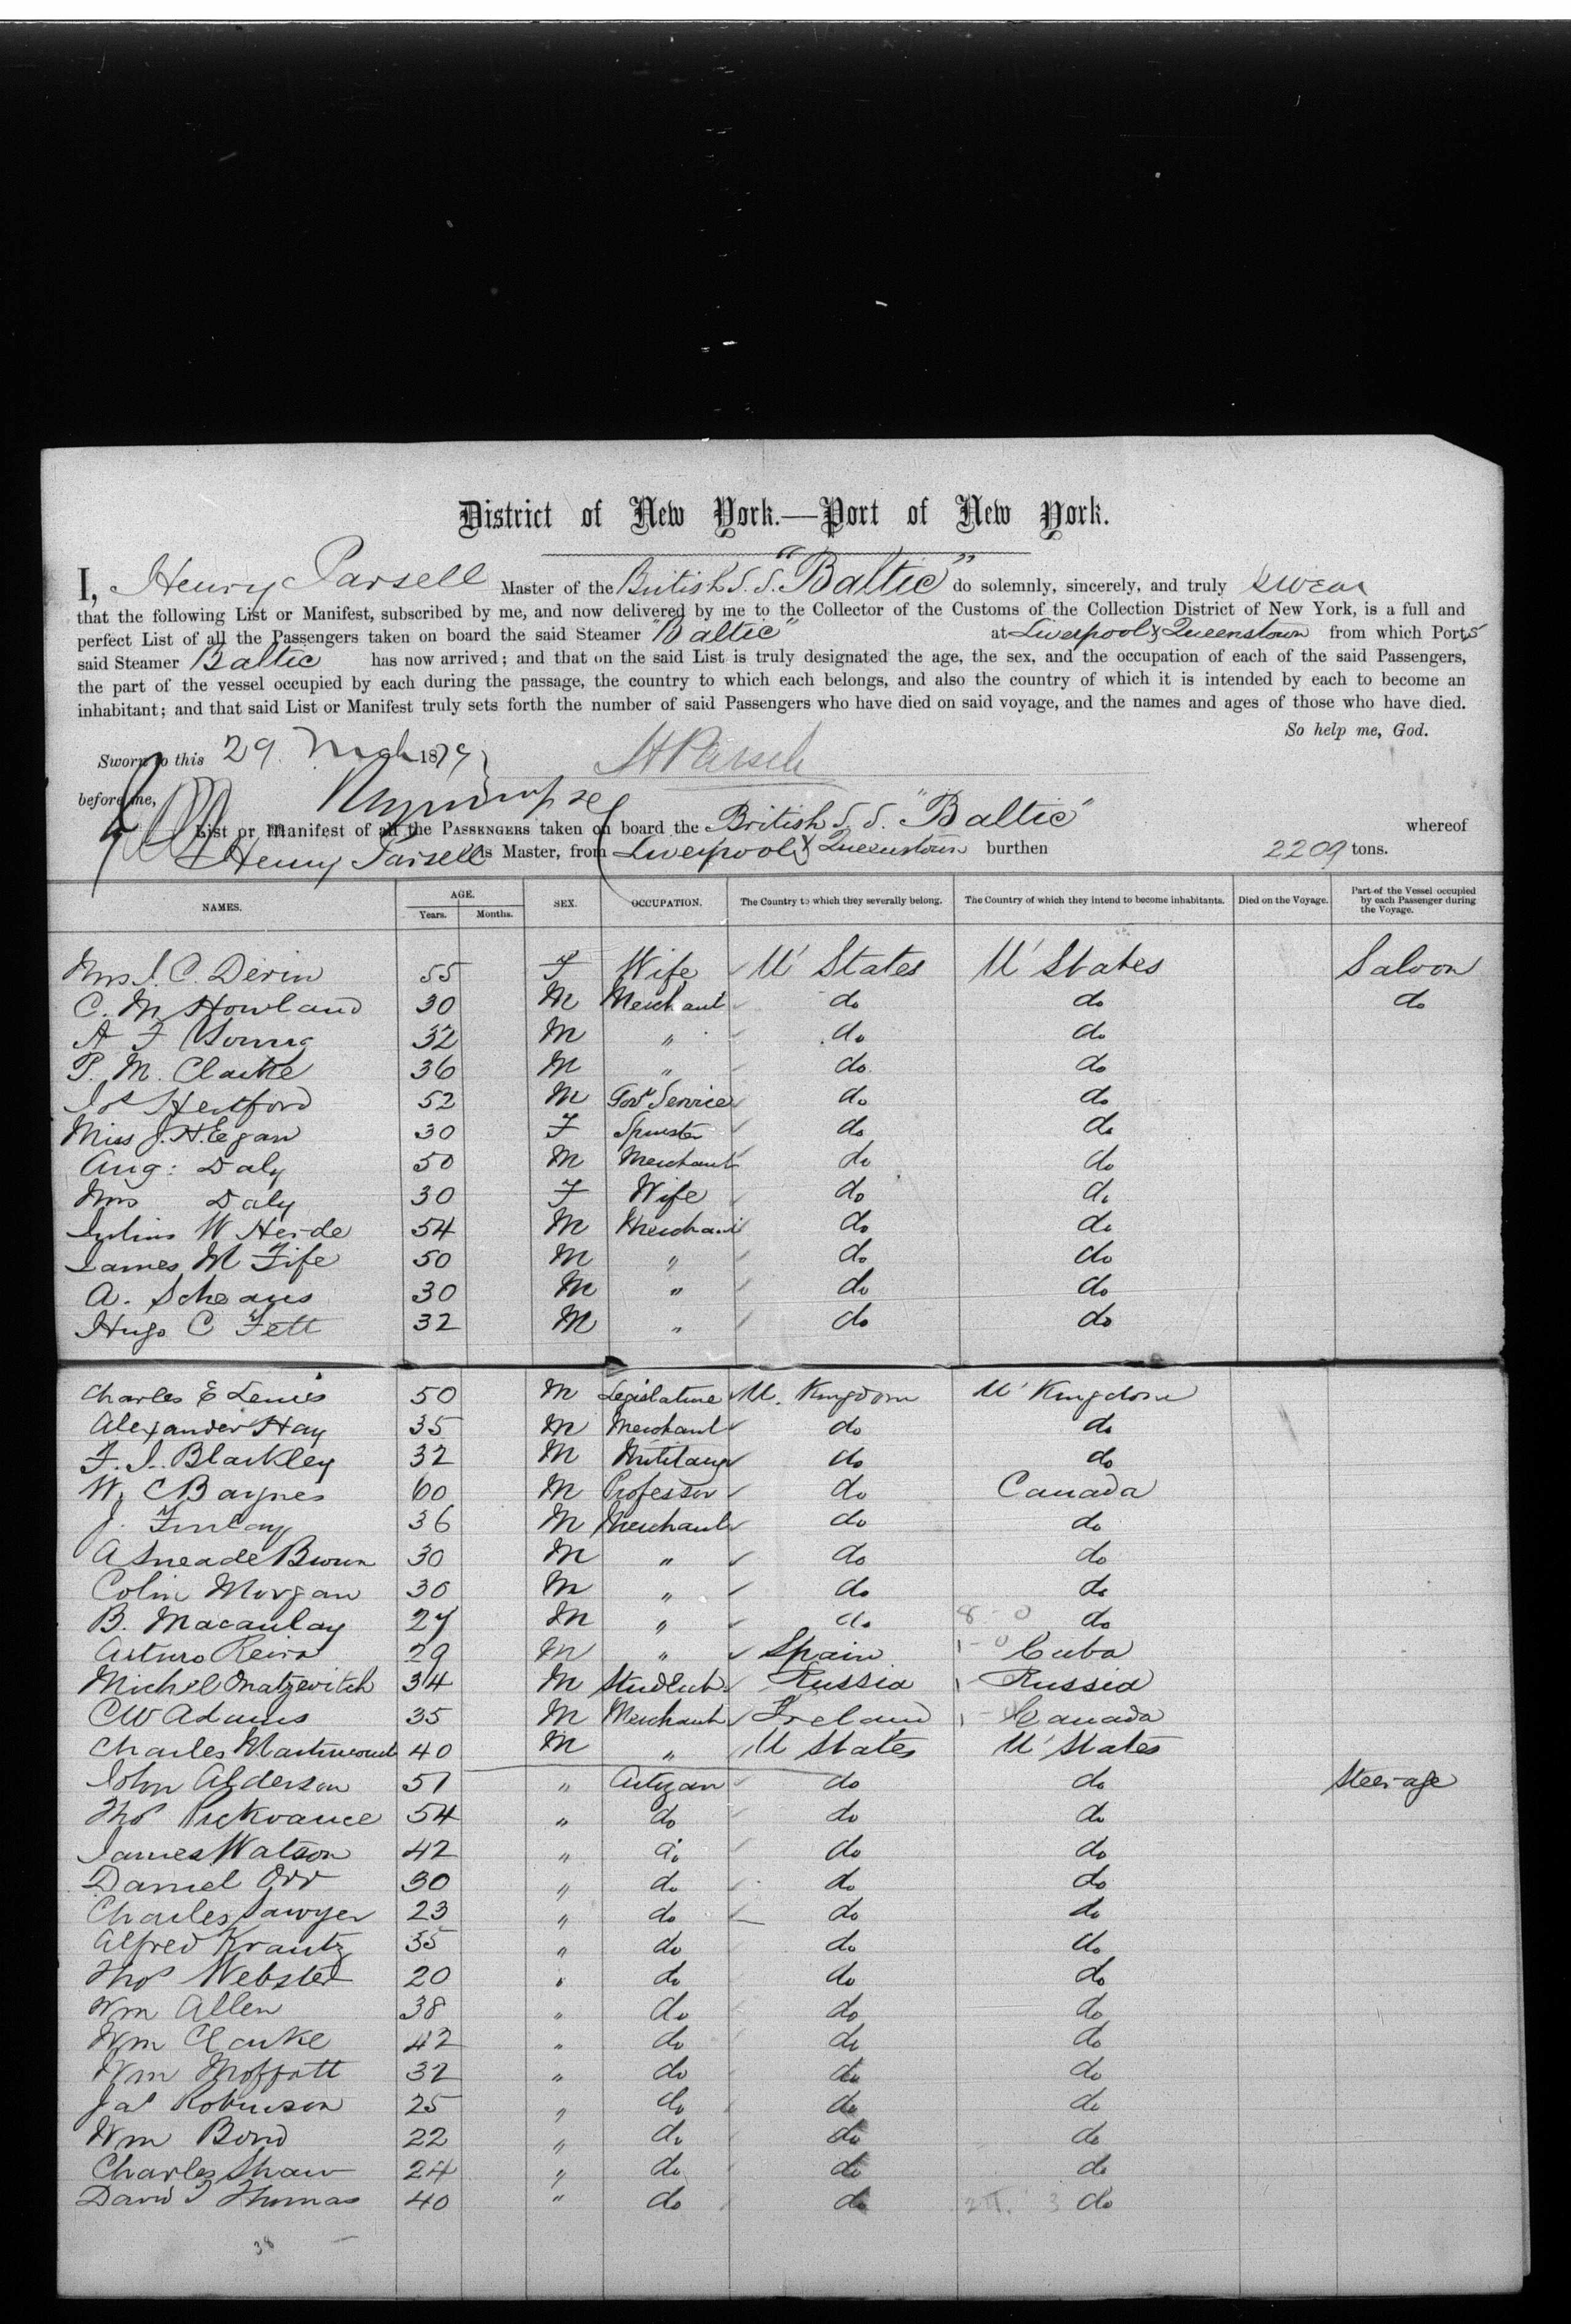 District of New York.—Port of New York.
I, Henry Parsell Master of the British S.S. "Baltic" do solemnly, sincerely, and truly swear
that the following List or Manifest, subscribed by me, and now delivered by me to the Collector of the Customs of the Collection District of New York, is a full and
perfect List of all the Passengers taken on board the said Steamer "Baltic" at Liverpool & Queenstown from which Ports
said Steamer Baltic has now arrived; and that on the said List is truly designated the age, the sex, and the occupation of each of the said Passengers,
the part of the vessel occupied by each during the passage, the country to which each belongs, and also the country of which it is intended by each to become an
inhabitant; and that said List or Manifest truly sets forth the number of said Passengers who have died on said voyage, and the names and ages of those who have died.
So help me, God.
Sworn to this 29 1879 H Parsell
before me,
List or Manifest of all the PASSENGERS taken on board the British S.S. "Baltic" whereof
Henry Parsell is Master, from Liverpool & Queenstown burthen 2209 tons.
NAMES. AGE. Years. Months. SEX. OCCUPATION. The Country to which they severally belong. The Country of which they intend to become inhabitants. Died on the Voyage. Part of the Vessel occupied by each Passenger during the Voyage.
Mrs J. C. Devin 55 F Wife U' States U' States Saloon
C. M Howland 30 M Merchant do do do
A F Young 32 M " do do
P. M. Clarke 36 M " do do
Jos Hertford 52 M Govt Service do do
Miss J. H. Egan 30 F Spinster do do
Aug: Daly 50 M Merchant do do
Mrs Daly 30 F Wife do do
Julius W Herde 54 M Merchant do do
James M Fife 50 M " do do
A. 30 M " do do
Hugo C Fett 32 M " do do
Charles E Lewis 50 M Legislature U. Kingdom U' Kingdom
Alexander Hay 35 M Merchant do do
F. J. Blackley 32 M do do
W. C Baynes 60 M Professor do Canada
J. Finlay 36 M Merchant do do
A Sneade Brown 30 M " do do
Colin Morgan 30 M " do do
B. Macaulay 27 M " do do
Arturo 29 M " Spain Cuba
Michel Matzevitch 34 M Student Russia Russia
C W Adams 35 M Merchant Ireland Canada
Charles 40 M " U States U' States
John Alderson 51 " Artizan do do Steerage
Thos Pickvance 54 " do do do
James Watson 42 " do do do
Daniel Orr 30 " do do do
Charles Sawyer 23 " do do do
Alfred Krantz 35 " do do do
Thos Webster 20 " do do do
Wm Allen 38 " do do do
Wm Clarke 42 " do do do
Wm Moffatt 32 " do do do
Jas Robinson 25 " do do do
Wm Bond 22 " do do do
Charles Shaw 24 " do do do
David T Thomas 40 " do do do
38